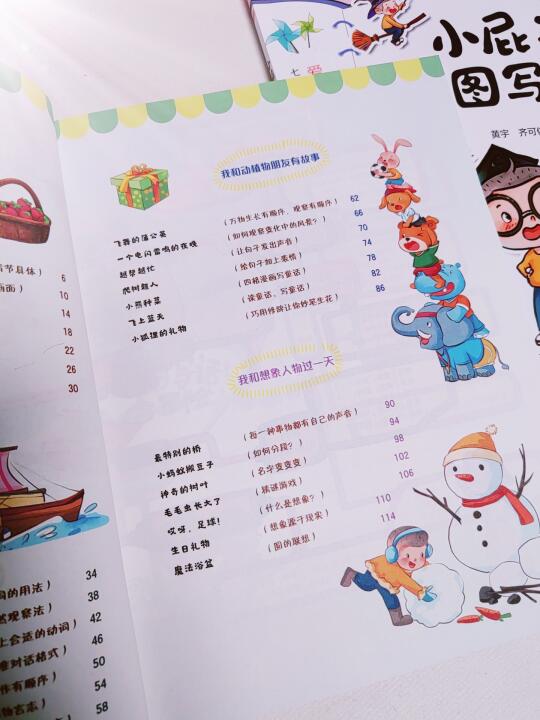 小屁
图写
黄宇 齐可
七 爱
我和动植物朋友有故事
飞舞的蒲公英 (万物生长有顺序,观察有顺序) 62
一个电闪雷鸣的夜晚 (如何观察变化中的风景?) 66
越帮越忙 (让句子发出声音) 70
爬树超人 (给句子加上表情) 74
小熊种菜 (四格漫画写童话) 78
飞上蓝天 (读童话,写童话) 82
小狐狸的礼物 (巧用修辞让你妙笔生花) 86
我和想象人物过一天
最特别的桥 (每一种事物都有自己的声音) 90
小蚂蚁搬豆子 (如何分段?) 94
神奇的树叶 (名字变变变) 98
毛毛虫长大了 (猜谜游戏) 102
哎呀,足球! (什么是想象?) 106
生日礼物 (想象源于现实) 110
魔法浴盆 (圆的联想) 114
情节具体) 6
画面) 10
14
18
22
26
30
的用法) 34
然观察法) 38
上合适的动词) 42
对话格式) 46
作有顺序) 50
物言志) 54
58